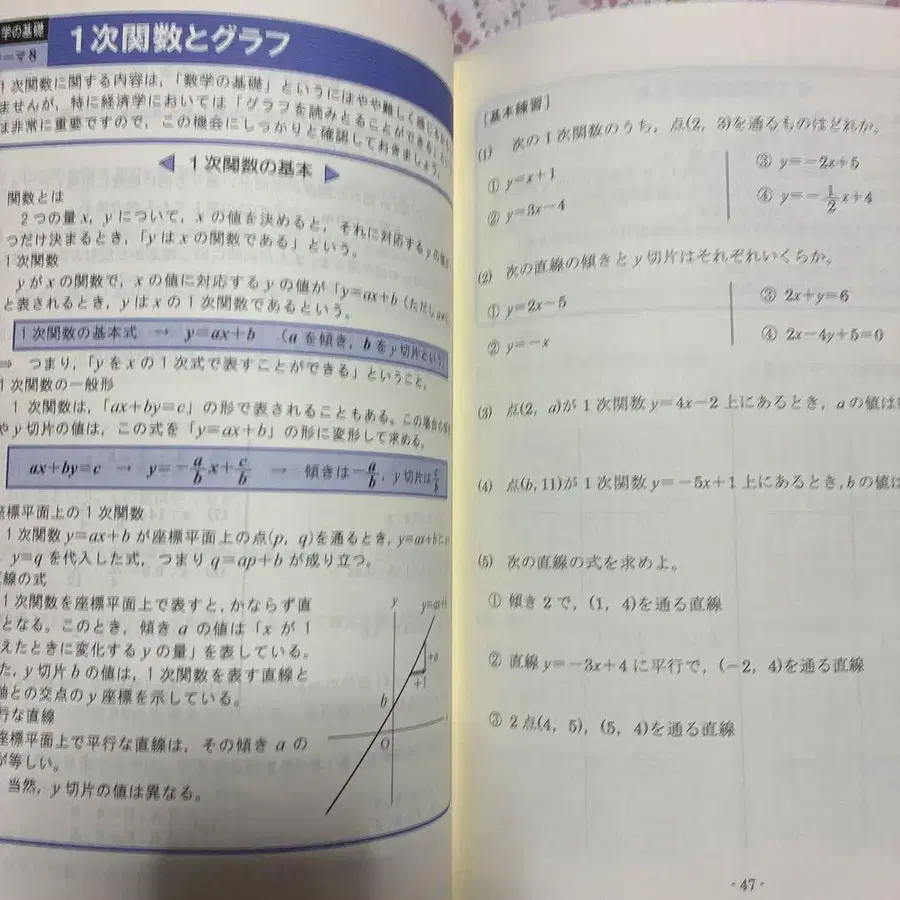 学の基礎
ーマ8
1次関数とグラフ
1次関数に関する内容は，「数学の基礎」というにはやや難しく感じ
ませんが，特に経済学においては「グラフを読みとることができる」
は非常に重要ですので，この機会にしっかりと確認しておきましょう。
1次関数の基本
関数とは
2つの量x，yについて，xの値を決めると，それに対応するyの値が
つだけ決まるとき，「yはxの関数である」という。
1次関数
yがxの関数で，xの値に対応するyの値が「y=ax+b（ただし
と表されるとき，yはxの1次関数であるという。
1次関数の基本式 → y=ax+b （aを傾き，bをy切片という）
⇒ つまり，「yをxの1次式で表すことができる」ということ。
1次関数の一般形
1次関数は，「ax+by=c」の形で表されることもある。この場合
やy切片の値は，この式を「y=ax+b」の形に変形して求める。
ax+by=c → y=-a/b x+c/b → 傾きは-a/b，y切片はc/b
座標平面上の1次関数
1次関数y=ax+bが座標平面上の点(p, q)を通るとき，y=ax+bに
y=qを代入した式，つまりq=ap+bが成り立つ。
線の式
1次関数を座標平面上で表すと，かならず直
となる。このとき，傾きaの値は「xが1
えたときに変化するyの量」を表している。
た，y切片bの値は，1次関数を表す直線と
軸との交点のy座標を示している。
行な直線
座標平面上で平行な直線は，その傾きaの
が等しい。
当然，y切片の値は異なる。
y
y=ax+b
+a
+1
b
O
［基本練習］
(1) 次の1次関数のうち，点(2, 3)を通るものはどれか。
① y=x+1
② y=3x-4
③ y=-2x+5
④ y=-1/2 x+4
(2) 次の直線の傾きとy切片はそれぞれいくらか。
① y=2x-5
② y=-x
③ 2x+y=6
④ 2x-4y+5=0
(3) 点(2, a)が1次関数y=4x-2上にあるとき，aの値は
(4) 点(b, 11)が1次関数y=-5x+1上にあるとき，bの値は
(5) 次の直線の式を求めよ。
① 傾き2で，(1, 4)を通る直線
② 直線y=-3x+4に平行で，(-2, 4)を通る直線
③ 2点(4, 5)，(5, 4)を通る直線
-47-